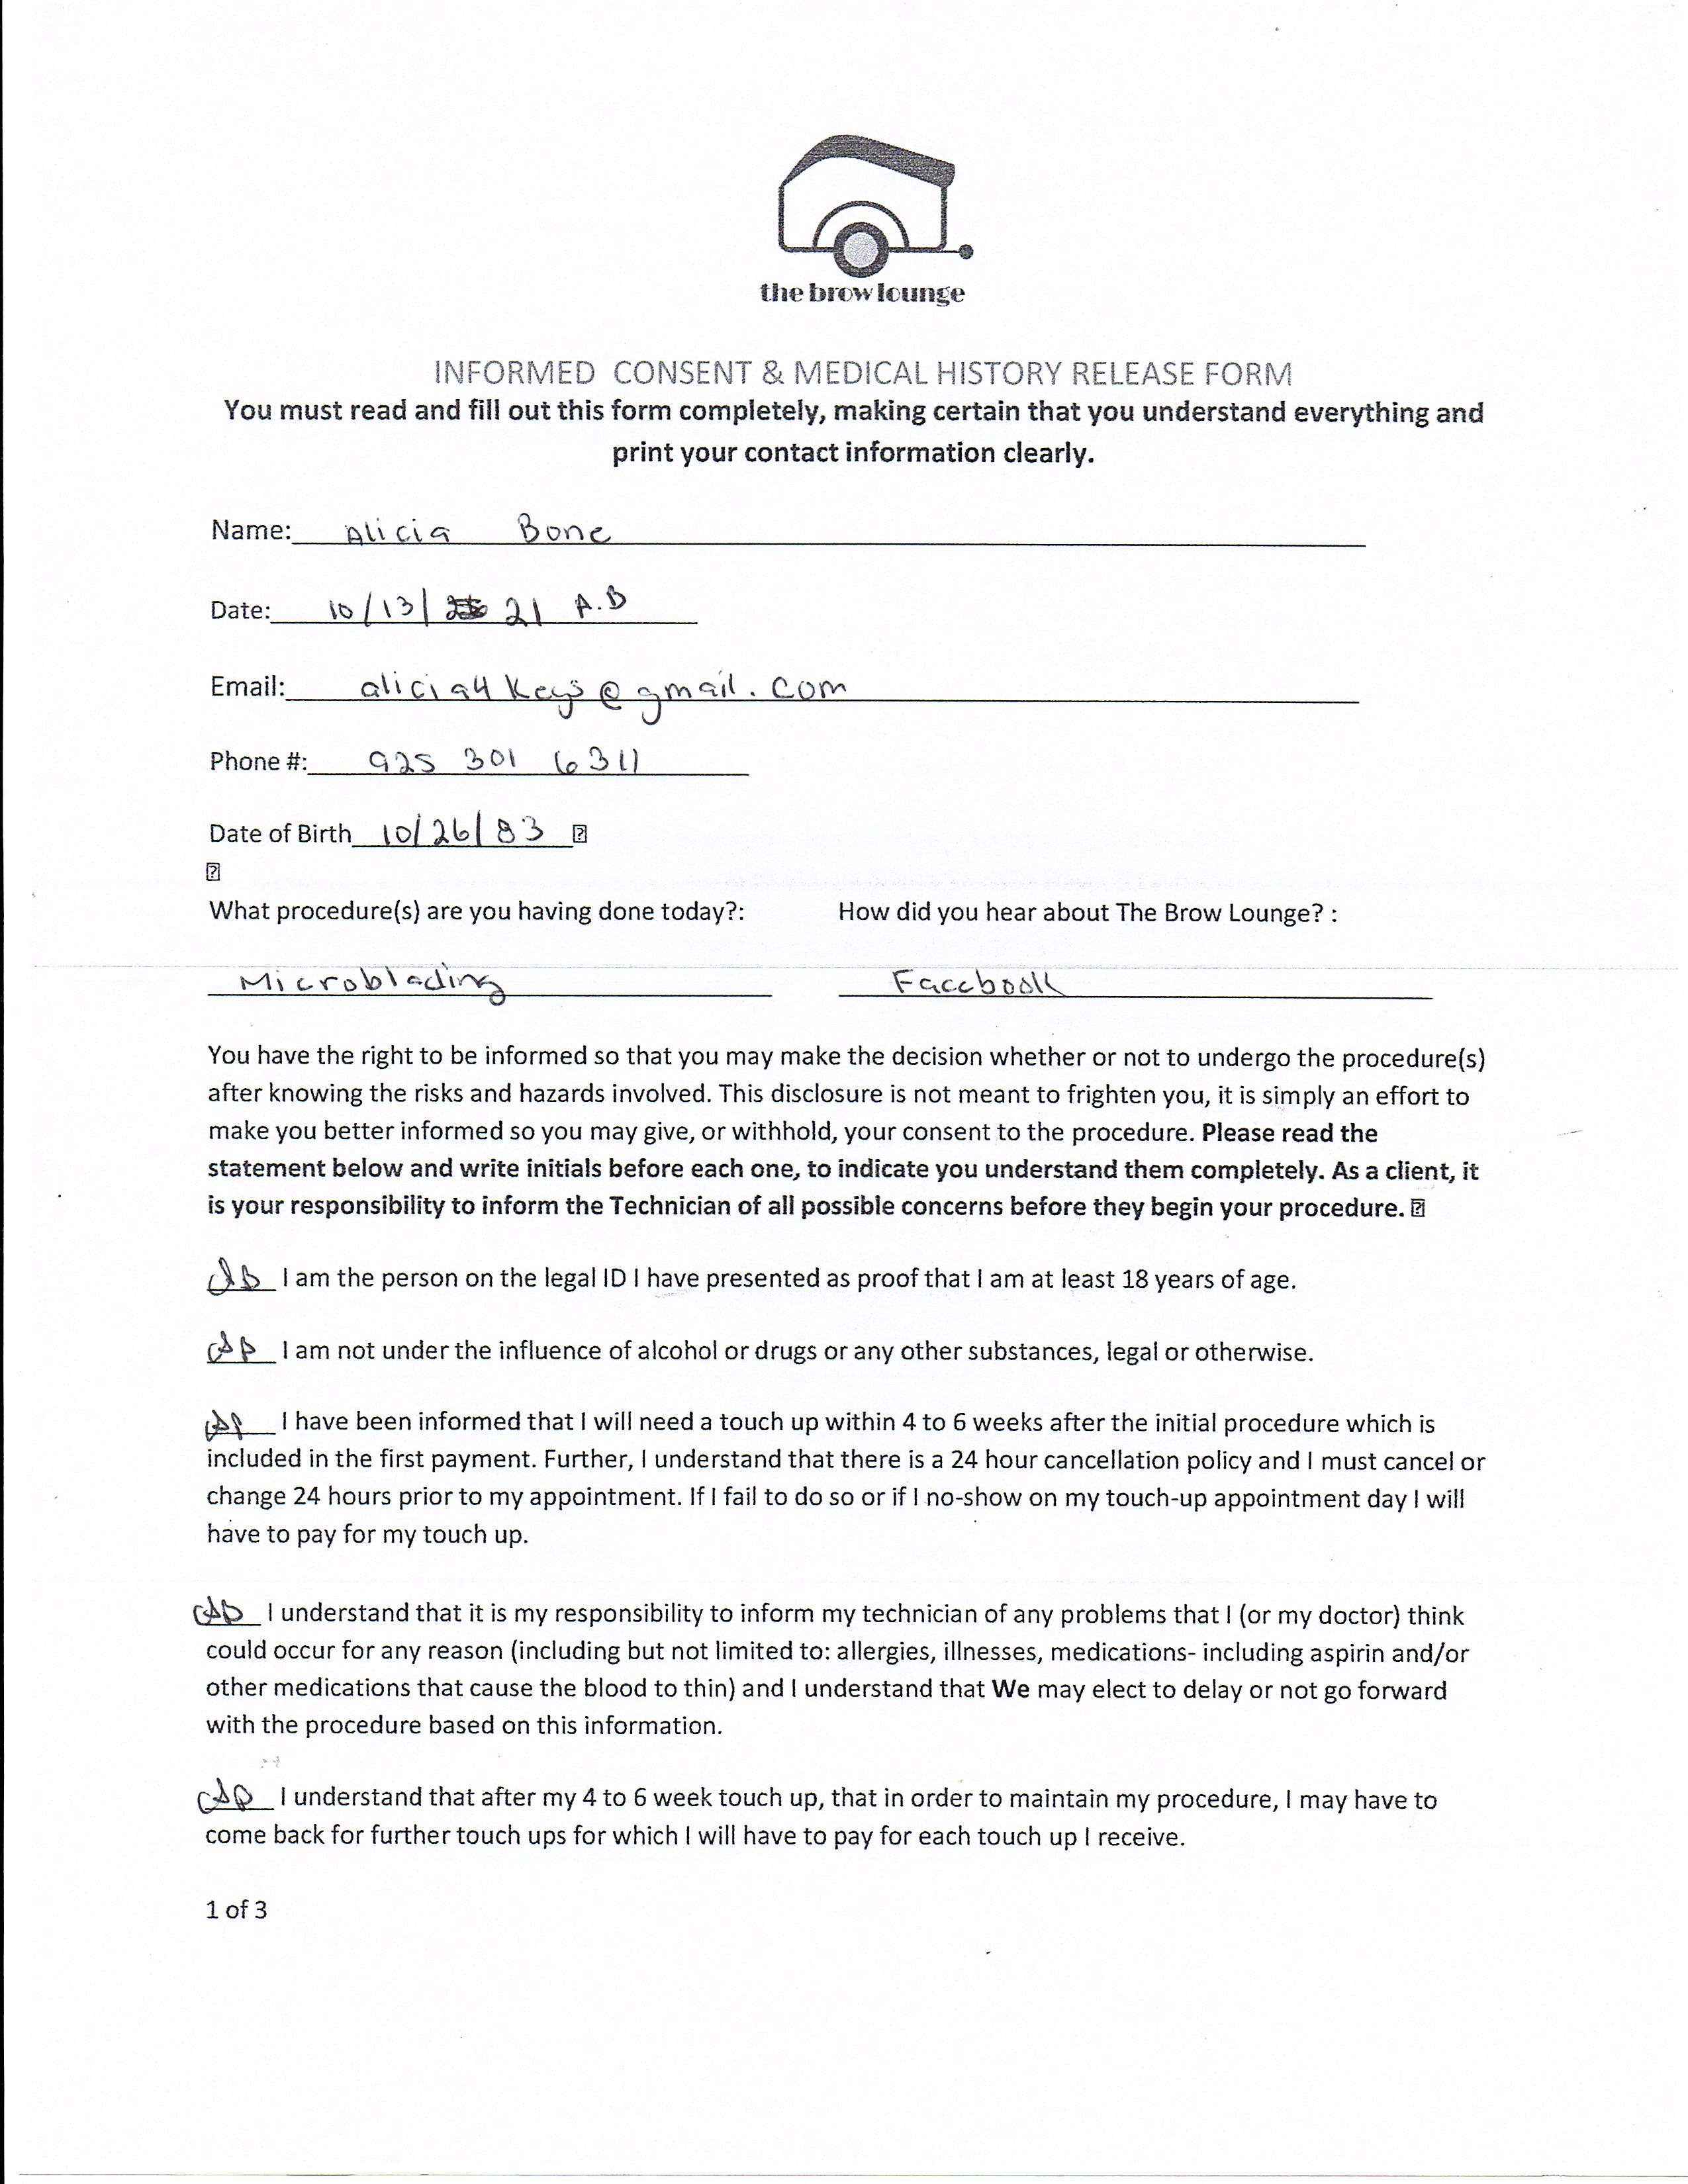 the brow lounge
INFORMED CONSENT & MEDICAL HISTORY RELEASE FORM
You must read and fill out this form completely, making certain that you understand everything and
print your contact information clearly.
Name: Alicia Bone
Date: 10/13/ 21 A.B
Email: alicia4keys@gmail.com
Phone #: 925 301 6311
Date of Birth 10/26/83
What procedure(s) are you having done today?: How did you hear about The Brow Lounge? :
Microblading Facebook
You have the right to be informed so that you may make the decision whether or not to undergo the procedure(s)
after knowing the risks and hazards involved. This disclosure is not meant to frighten you, it is simply an effort to
make you better informed so you may give, or withhold, your consent to the procedure. Please read the
statement below and write initials before each one, to indicate you understand them completely. As a client, it
is your responsibility to inform the Technician of all possible concerns before they begin your procedure.
Ab I am the person on the legal ID I have presented as proof that I am at least 18 years of age.
I am not under the influence of alcohol or drugs or any other substances, legal or otherwise.
I have been informed that I will need a touch up within 4 to 6 weeks after the initial procedure which is
included in the first payment. Further, I understand that there is a 24 hour cancellation policy and I must cancel or
change 24 hours prior to my appointment. If I fail to do so or if I no-show on my touch-up appointment day I will
have to pay for my touch up.
Ab I understand that it is my responsibility to inform my technician of any problems that I (or my doctor) think
could occur for any reason (including but not limited to: allergies, illnesses, medications- including aspirin and/or
other medications that cause the blood to thin) and I understand that We may elect to delay or not go forward
with the procedure based on this information.
I understand that after my 4 to 6 week touch up, that in order to maintain my procedure, I may have to
come back for further touch ups for which I will have to pay for each touch up I receive.
1 of 3